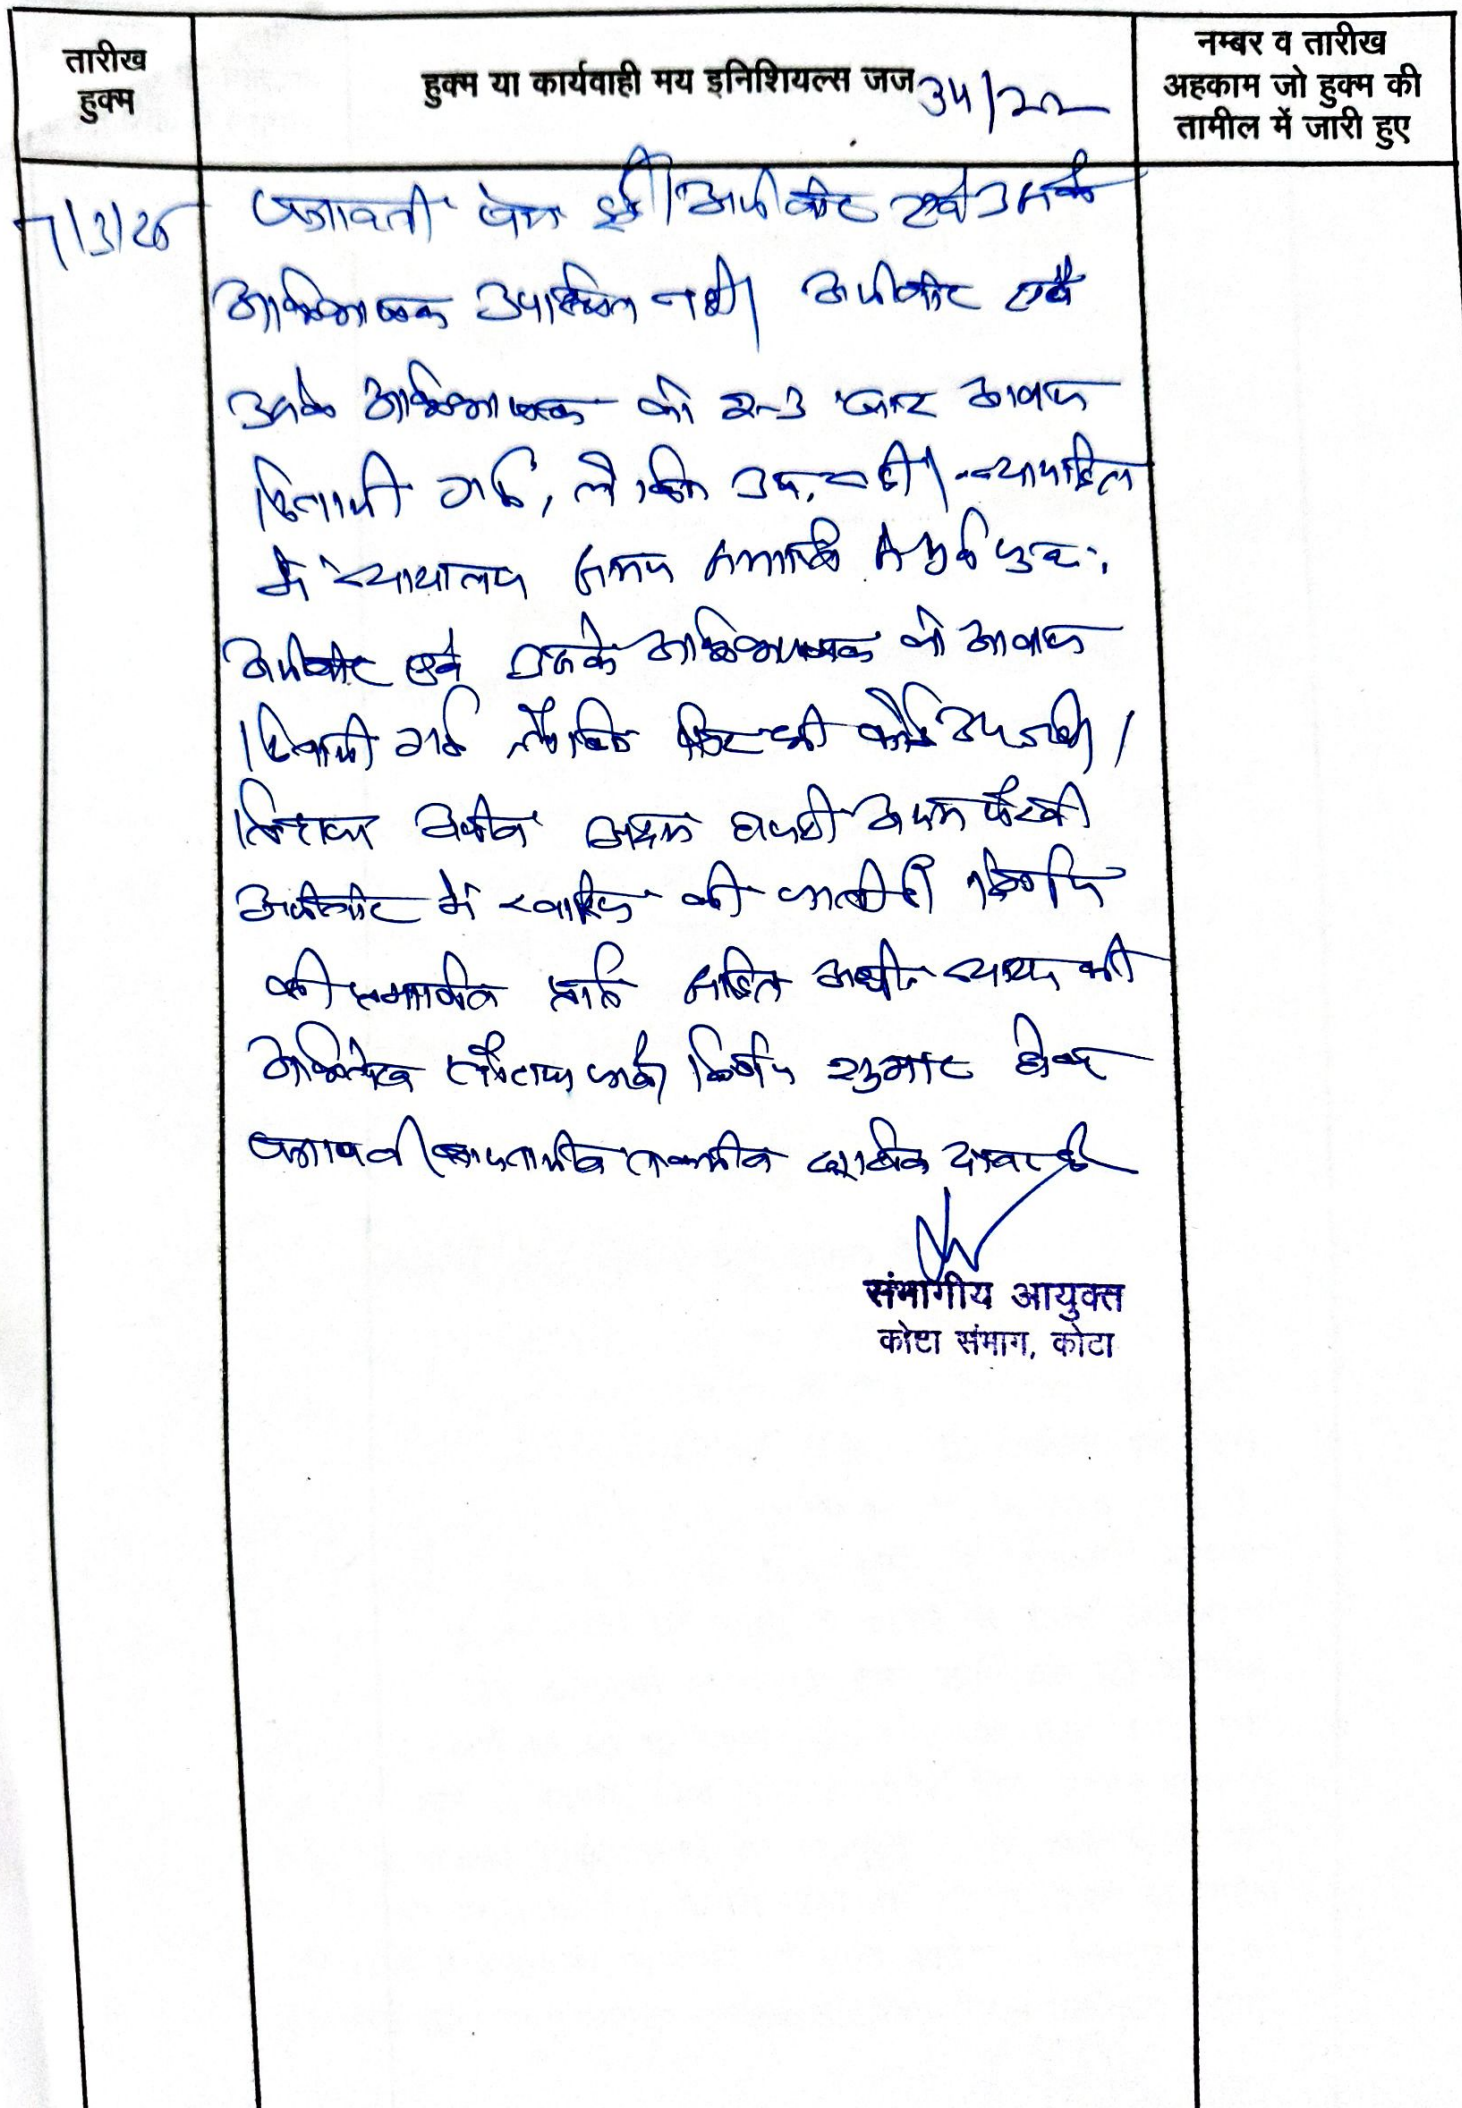 तारीख
हुक्म
हुक्म या कार्यवाही मय इनिशियल्स जज 34/22
नम्बर व तारीख
अहकाम जो हुक्म की
तामील में जारी हुए
7/3/26
पत्रावली पेश हुई। अपीलांट एवं उसके
अभिभाषक उपस्थित नहीं। अपीलांट एवं
उसके अभिभाषक को 2-3 बार आवाज
दिलायी गई, लेकिन उप. नहीं। न्यायहित
में न्यायालय समय समाप्ति से पूर्व पुनः
अपीलांट एवं उसके अभिभाषक को आवाज
दिलायी गई लेकिन फिर भी कोई उप नहीं।
लिहाजा अपील अदम हाजरी अदम पैरवी
अपीलांट में खारिज की जाती है। निर्णय
की प्रमाणित प्रति सहित अधी. न्याया. का
अभिलेख लौटाया जावे। निर्णय शुमार होकर
पत्रावली बाद तकमील दाखिल दफ्तर हो
संभागीय आयुक्त
कोटा संभाग, कोटा